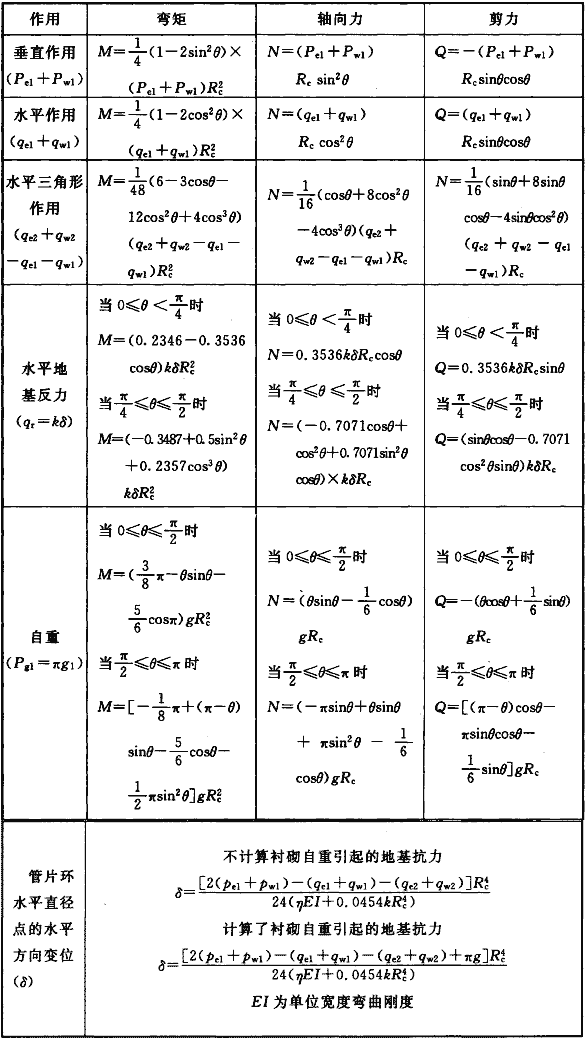 作用 弯矩 轴向力 剪力
垂直作用
(P_{e1}+P_{w1})
M=\frac{1}{4}(1-2sin²θ)×
(P_{e1}+P_{w1})R_c²
N=(P_{e1}+P_{w1})
R_c sin²θ
Q=-(P_{e1}+P_{w1})
R_c sinθcosθ
水平作用
(q_{e1}+q_{w1})
M=\frac{1}{4}(1-2cos²θ)×
(q_{e1}+q_{w1})R_c²
N=(q_{e1}+q_{w1})
R_c cos²θ
Q=(q_{e1}+q_{w1})
R_c sinθcosθ
水平三角形
作用
(q_{e2}+q_{w2}
-q_{e1}-q_{w1})
M=\frac{1}{48}(6-3cosθ-
12cos²θ+4cos³θ)
(q_{e2}+q_{w2}-q_{e1}-
q_{w1})R_c²
N=\frac{1}{16}(cosθ+8cos²θ
-4cos³θ)(q_{e2}+
q_{w2}-q_{e1}-q_{w1})R_c
N=\frac{1}{16}(sinθ+8sinθ
cosθ-4sinθcos²θ)
(q_{e2}+q_{w2}-q_{e1}
-q_{w1})R_c
水平地
基反力
(q_r=kδ)
当0≤θ<\frac{π}{4}时
M=(0.2346-0.3536
cosθ)kδR_c²
当\frac{π}{4}≤θ≤\frac{π}{2}时
M=(-0.3487+0.5sin²θ
+0.2357cos³θ)
kδR_c²
当0≤θ<\frac{π}{4}时
N=0.3536kδR_c cosθ
当\frac{π}{4}≤θ≤\frac{π}{2}时
N=(-0.7071cosθ+
cos²θ+0.7071sin²θ
cosθ)×kδR_c
当0≤θ<\frac{π}{4}时
Q=0.3536kδR_c sinθ
当\frac{π}{4}≤θ≤\frac{π}{2}时
Q=(sinθcosθ-0.7071
cos²θsinθ)kδR_c
自重
(P_{g1}=πg_1)
当0≤θ≤\frac{π}{2}时
M=(\frac{3}{8}π-θsinθ-
\frac{5}{6}cosπ)gR_c²
当\frac{π}{2}≤θ≤π时
M=[-\frac{1}{8}π+(π-θ)
sinθ-\frac{5}{6}cosθ-
\frac{1}{2}πsin²θ]gR_c²
当0≤θ≤\frac{π}{2}时
N=(θsinθ-\frac{1}{6}cosθ)
gR_c
当\frac{π}{2}≤θ≤π时
N=(-πsinθ+θsinθ
+πsin²θ-\frac{1}{6}
cosθ)gR_c
当0≤θ≤\frac{π}{2}时
Q=-(θcosθ+\frac{1}{6}sinθ)
gR_c
当\frac{π}{2}≤θ≤π时
Q=[(π-θ)cosθ-
πsinθcosθ-
\frac{1}{6}sinθ]gR_c
管片环
水平直径
点的水平
方向变位
(δ)
不计算衬砌自重引起的地基抗力
δ=\frac{[2(p_{e1}+p_{w1})-(q_{e1}+q_{w1})-(q_{e2}+q_{w2})]R_c⁴}{24(ηEI+0.0454kR_c⁴)}
计算了衬砌自重引起的地基抗力
δ=\frac{[2(p_{e1}+p_{w1})-(q_{e1}+q_{w1})-(q_{e2}+q_{w2})+πg]R_c⁴}{24(ηEI+0.0454kR_c⁴)}
EI 为单位宽度弯曲刚度